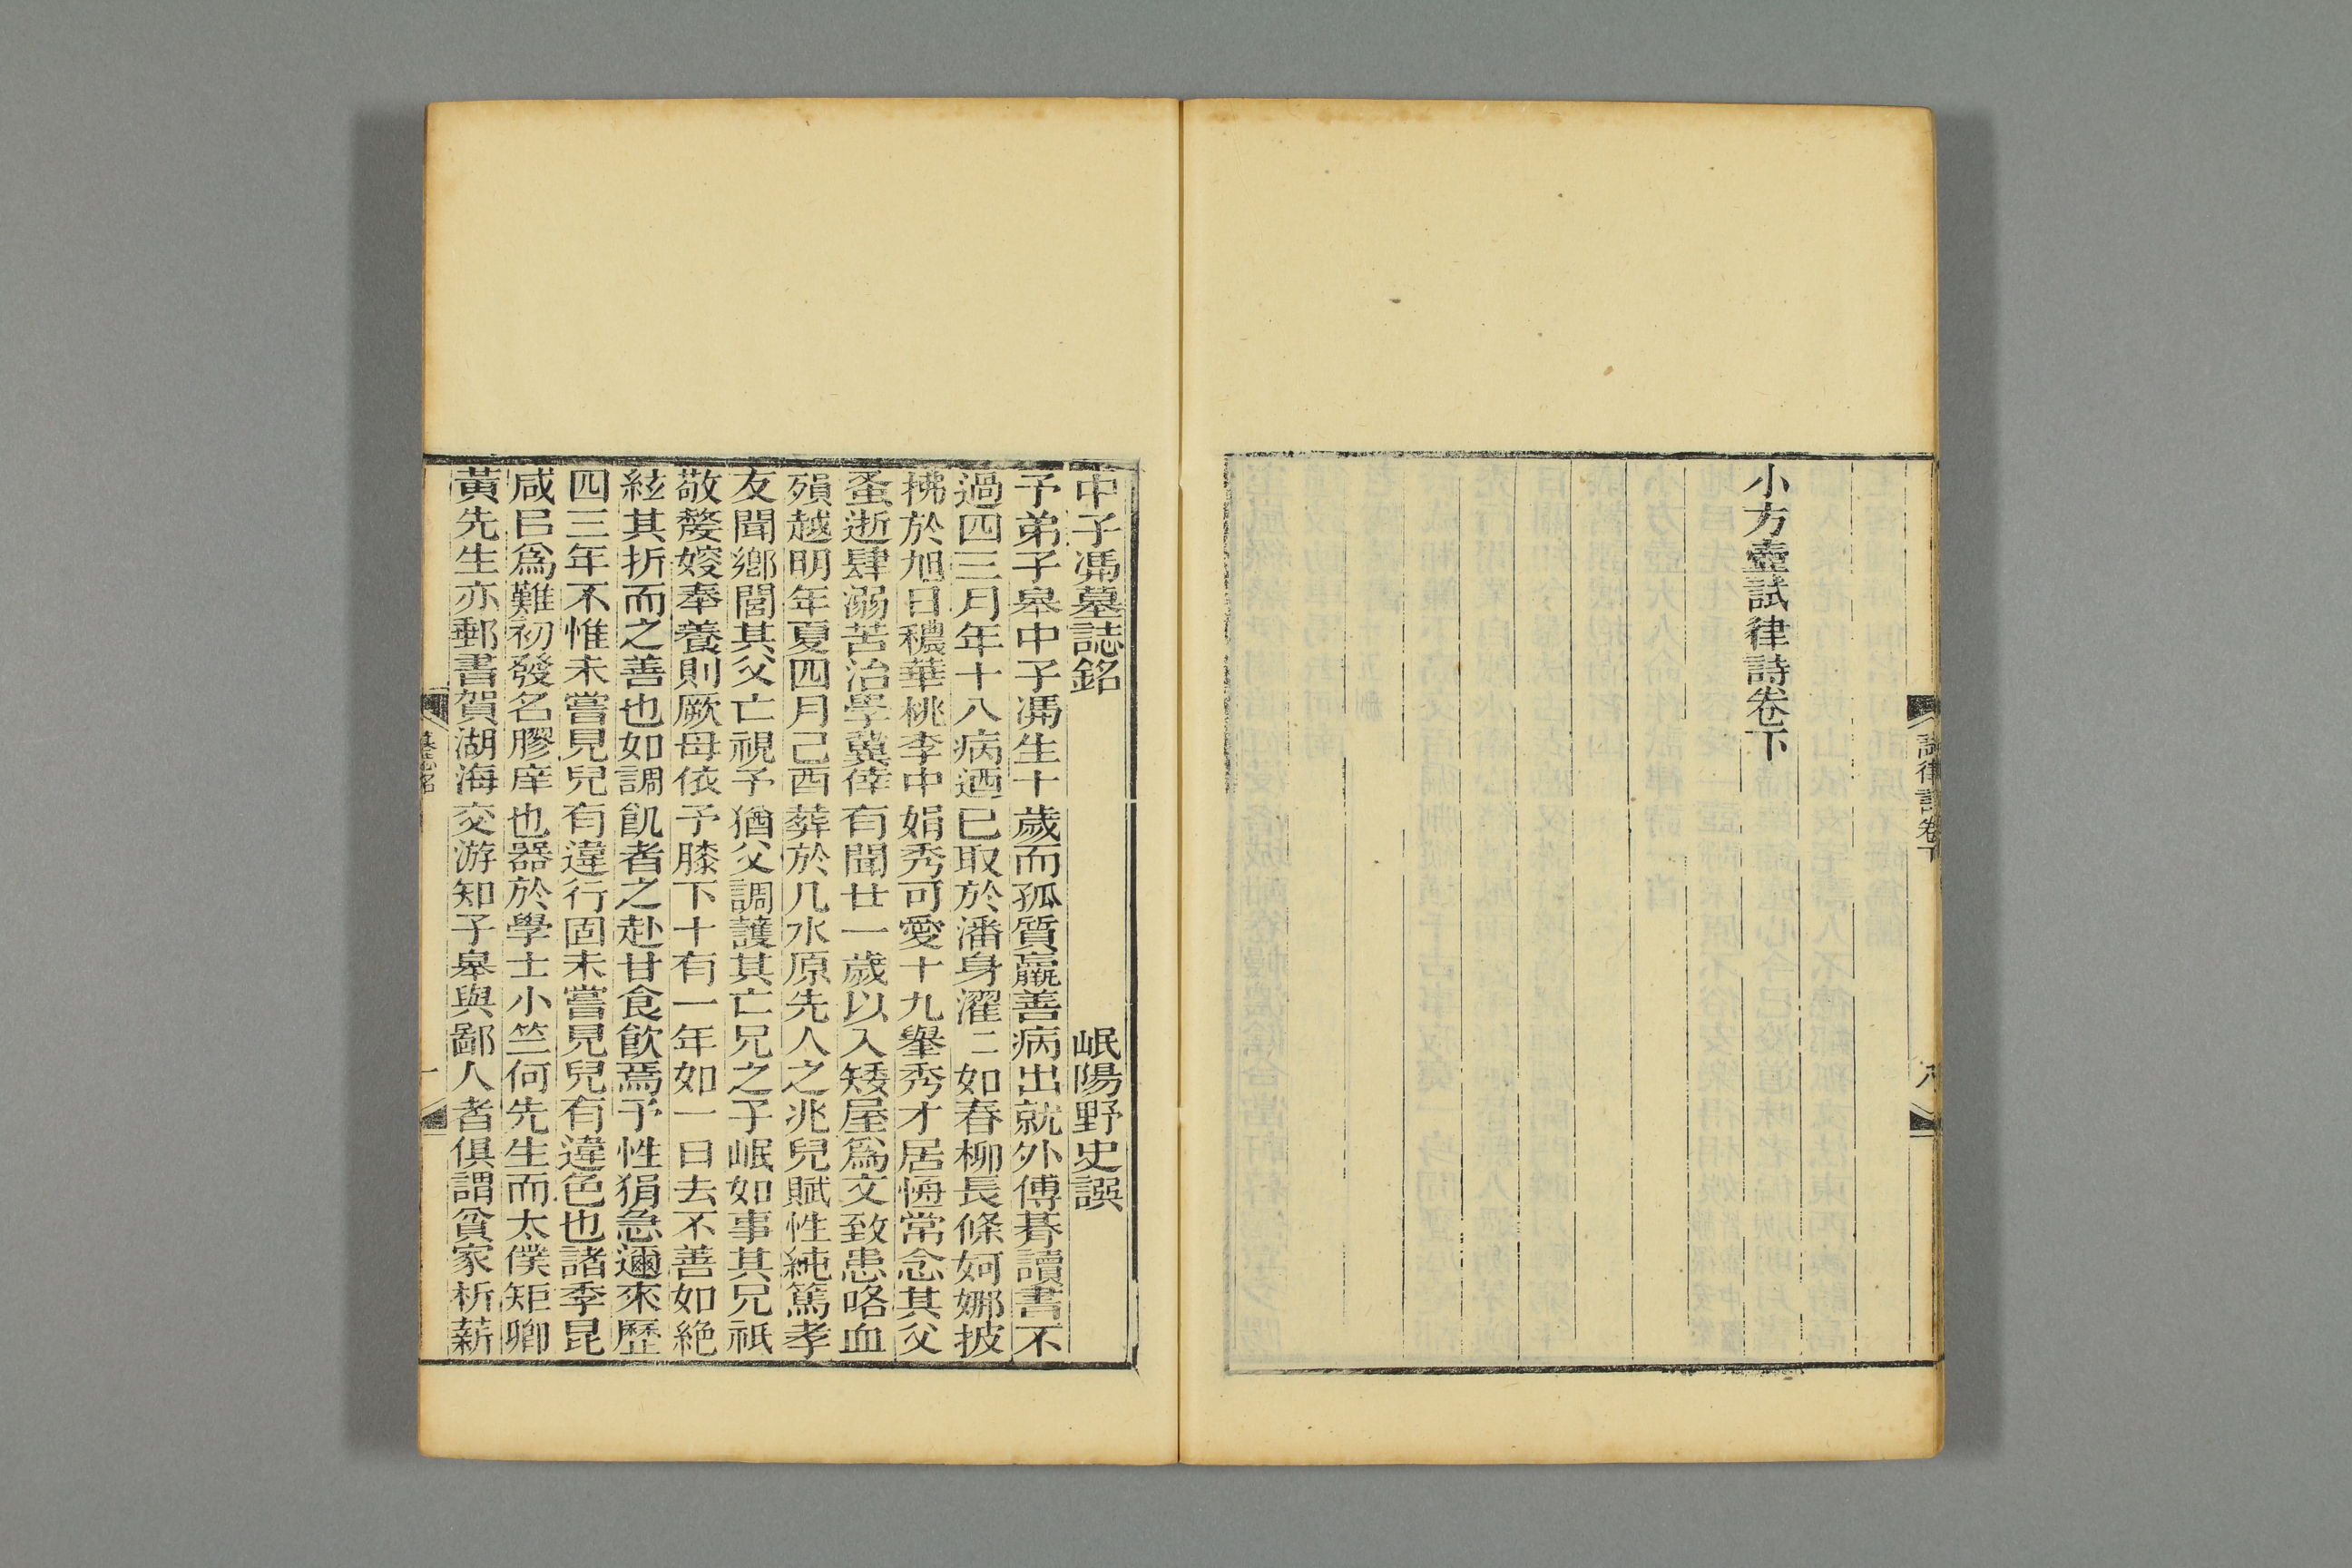 試律詩卷下
小方壺試律詩卷下
中子馮墓誌銘 岷陽野史譔
予弟子皋中子馮生十歲而孤質羸善病出就外傅朞讀書不
過四三月年十八病迺已取於潘身濯二如春柳長條婀娜披
拂於旭日穠華桃李中娟秀可愛十九舉秀才居恆常念其父
蚤逝肆溺苦治學冀倖有聞廿一歲以入矮屋爲文致患咯血
殞越明年夏四月己酉葬於几水原先人之兆兒賦性純篤孝
友聞鄉閭其父亡視予猶父調護其亡兄之子岷如事其兄祇
敬嫠嫂奉養則厥母依予膝下十有一年如一日去不善如絶
絃其折而之善也如調飢者之赴甘食飲焉予性狷急邇來歷
四三年不惟未嘗見兒有違行固未嘗見兒有違色也諸季昆
咸㠯爲難初發名膠庠也器於學士小竺何先生而太僕矩卿
黃先生亦郵書賀湖海交游知子皋與鄙人者俱謂貧家析薪
墓志銘 一